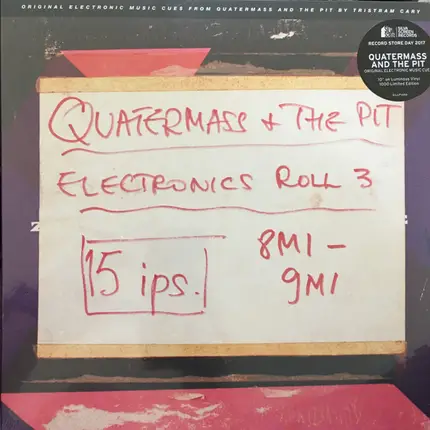 ORIGINAL ELECTRONIC MUSIC CUES FROM QUATERMASS AND THE PIT BY TRISTRAM CARY
RECORD STORE DAY 2017
QUATERMASS
AND THE PIT
ORIGINAL ELECTRONIC MUSIC CUES
10" on Luminous Vinyl
1000 Limited Edition
QUATERMASS & THE PIT
ELECTRONICS ROLL 3
15 ips.
8M1 –
9M1